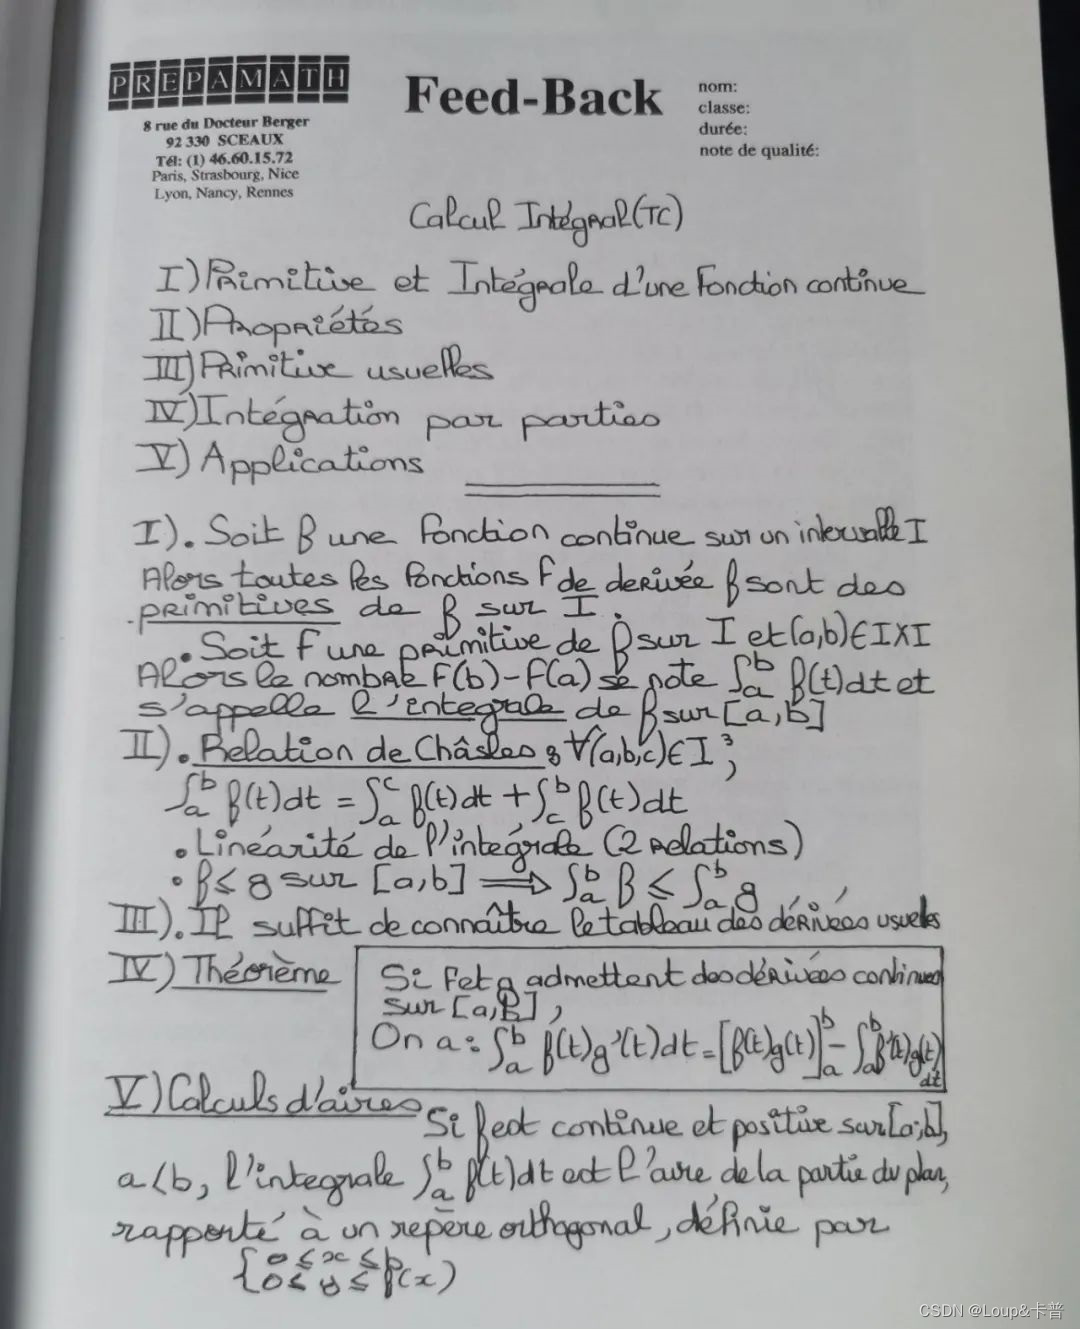 PREPAMATH
8 rue du Docteur Berger
92 330 SCEAUX
Tél: (1) 46.60.15.72
Paris, Strasbourg, Nice
Lyon, Nancy, Rennes
Feed-Back
nom:
classe:
durée:
note de qualité:
Calcul Intégral (TC)
I) Primitive et Intégrale d'une Fonction continue
II) Propriétés
III) Primitive usuelles
IV) Intégration par parties
V) Applications
I). Soit f une fonction continue sur un intervalle I
Alors toutes les fonctions F de derivée f sont des
primitives de f sur I.
. Soit F une primitive de f sur I et (a,b)∈I×I
Alors le nombre F(b)-F(a) se note ∫_a^b f(t)dt et
s'appelle l'integrale de f sur [a,b]
II). Relation de Châsles : ∀(a,b,c)∈I³,
∫_a^b f(t)dt = ∫_a^c f(t)dt + ∫_c^b f(t)dt
. Linéarité de l'intégrale (2 relations)
. f ≤ g sur [a,b] ⟹ ∫_a^b f ≤ ∫_a^b g
III). Il suffit de connaître le tableau des dérivées usuelles
IV) Théorème
Si f et g admettent des dérivées continues
sur [a,b],
On a: ∫_a^b f(t)g'(t)dt = [f(t)g(t)]_a^b - ∫_a^b f'(t)g(t)
dt
V) Calculs d'aires
Si f est continue et positive sur [a;b],
a<b, l'integrale ∫_a^b f(t)dt est l'aire de la partie du plan,
rapporté à un repère orthogonal, définie par
{ a ≤ x ≤ b
0 ≤ y ≤ f(x)
CSDN @Loup&卡普